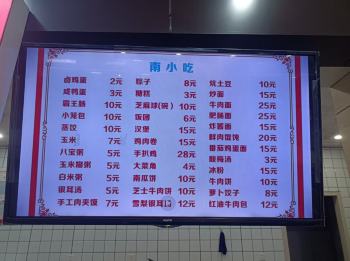 南小吃
卤鸡蛋 2元 粽子 8元 烧土豆 10元
咸鸭蛋 3元 糖糕 3元 炒面 15元
霸王肠 10元 芝麻球(碗) 10元 牛肉面 25元
小笼包 10元 饭团 6元 肥肠面 25元
蒸饺 10元 汉堡 15元 炸酱面 15元
玉米 7元 鸡肉卷 15元 鲜肉馄饨 20元
八宝粥 5元 手扒鸡 28元 番茄鸡蛋面 15元
玉米糊粥 5元 大菜角 4元 酸梅汤 3元
白米粥 5元 南瓜饼 10元 冰粉 15元
银耳汤 5元 芝士牛肉饼 10元 牛肉饼 10元
手工肉夹饭 7元 雪梨银耳 12元 萝卜饺子 8元
红油牛肉包 12元